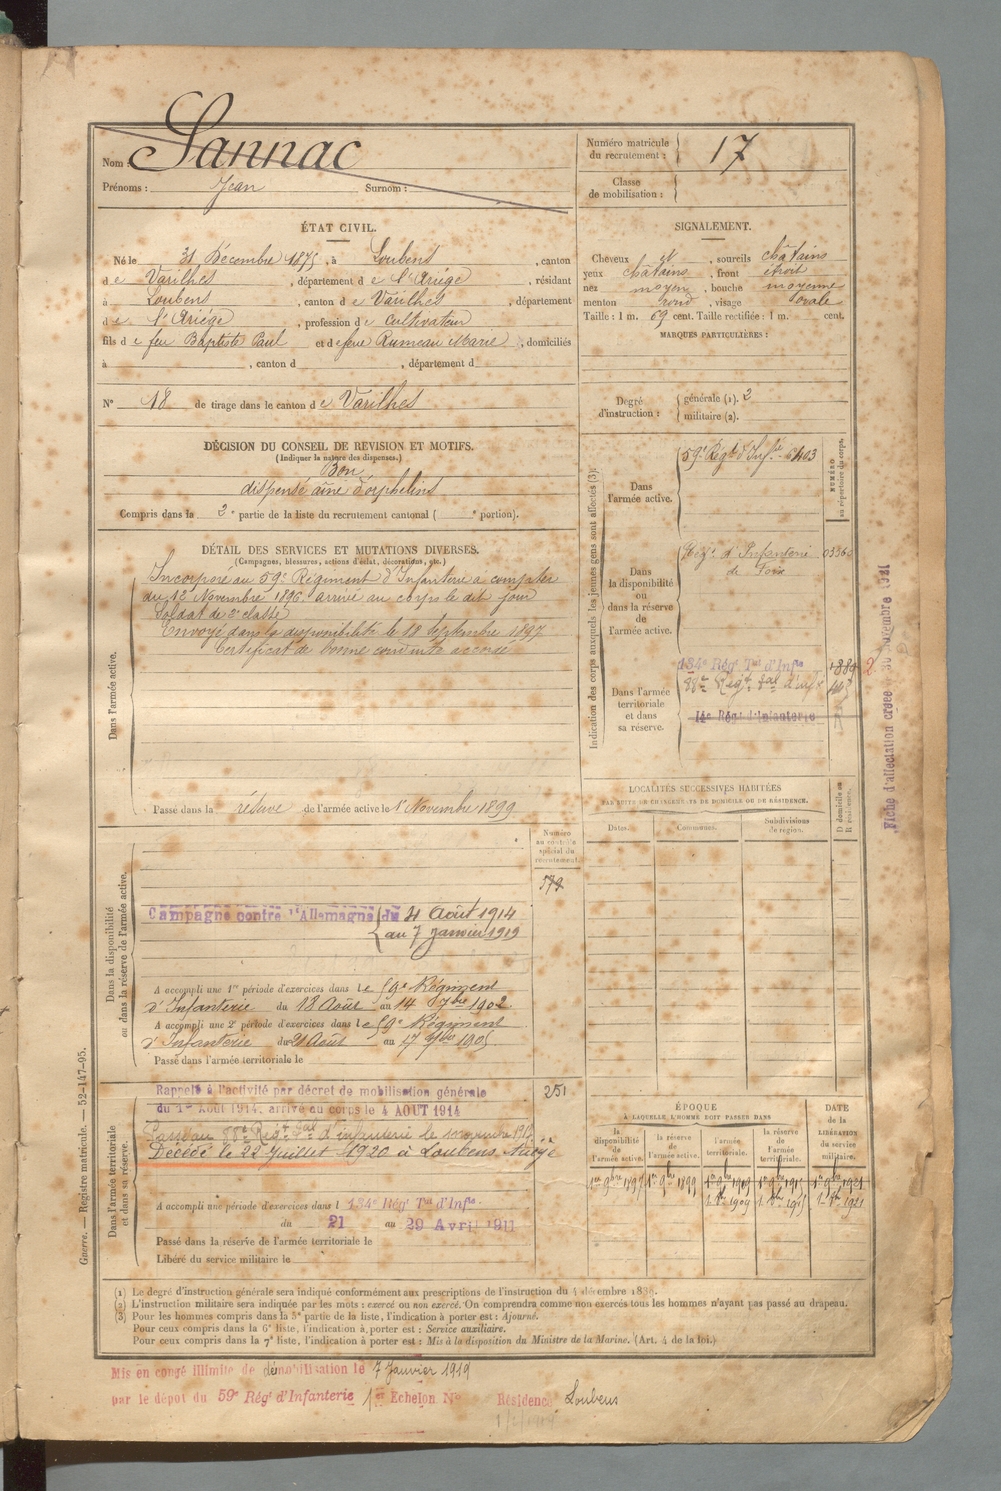 Nom : Sannac
Prénoms : Jean Surnom :
Numéro matricule du recrutement : 17
Classe de mobilisation :
ÉTAT CIVIL.
Né le 31 Décembre 1875, à Loubens, canton
de Varilhes, département de l'Ariège, résidant
à Loubens, canton de Varilhes, département
de l'Ariège, profession de cultivateur
fils de feu Baptiste Paul et de feue Rumeau Marie, domiciliés
à , canton d , département d
N° 18 de tirage dans le canton de Varilhes
SIGNALEMENT.
Cheveux et , sourcils châtains
yeux châtains , front étroit
nez moyen , bouche moyenne
menton rond , visage ovale
Taille : 1 m. 69 cent. Taille rectifiée : 1 m. cent.
MARQUES PARTICULIÈRES :
Degré d'instruction : générale (1). 2
militaire (2).
DÉCISION DU CONSEIL DE REVISION ET MOTIFS.
(Indiquer la nature des dispenses.)
Bon
dispensé aîné d'orphelins
Compris dans la 2e partie de la liste du recrutement cantonal ( e portion).
DÉTAIL DES SERVICES ET MUTATIONS DIVERSES.
(Campagnes, blessures, actions d'éclat, décorations, etc.)
Dans l'armée active.
Incorporé au 59e Régiment d'Infanterie à compter
du 12 Novembre 1896. arrivé au corps le dit jour
Soldat de 2e classe
Envoyé dans la disponibilité le 18 Septembre 1897
Certificat de bonne conduite accordé
Passé dans la réserve de l'armée active le 1er Novembre 1899
Indication des corps auxquels les jeunes gens sont affectés (3):
NUMÉRO au répertoire du corps.
Dans l'armée active.
59e Régt d'Infie
Dans la disponibilité ou dans la réserve de l'armée active.
Régt d'Infanterie de Foix
Dans l'armée territoriale et dans sa réserve.
134e Régt Tal d'Infie
88e Régt Tal d'infie
14e Régt d'Infanterie
2
Fiche d'affectation créée 30 Novembre 1921
LOCALITÉS SUCCESSIVES HABITÉES
PAR SUITE DE CHANGEMENTS DE DOMICILE OU DE RÉSIDENCE.
Dates. Communes. Subdivisions de région. D domicile ou R résidence.
Numéro au contrôle spécial du recrutement.
579
Dans la disponibilité ou dans la réserve de l'armée active.
Campagne contre l'Allemagne du 4 Août 1914
au 7 Janvier 1919
A accompli une 1re période d'exercices dans le 59e Régiment
d'Infanterie du 18 Août au 14 7bre 1902
A accompli une 2e période d'exercices dans le 59e Régiment
d'Infanterie du 21 Août au 17 7bre 1905
Passé dans l'armée territoriale le
251
Dans l'armée territoriale et dans sa réserve.
Rappelé à l'activité par décret de mobilisation générale
du 1er Août 1914, arrivé au corps le 4 AOUT 1914
Passé au 88e Régt Tal d'infanterie le
Décédé le 22 Juillet 1920 à Loubens Ariège
A accompli une période d'exercices dans l 134e Régt Tal d'Infie
du 21 au 29 Avril 1911
Passé dans la réserve de l'armée territoriale le
Libéré du service militaire le
ÉPOQUE
À LAQUELLE L'HOMME DOIT PASSER DANS
la disponibilité de l'armée active. la réserve de l'armée active. l'armée territoriale. la réserve de l'armée territoriale.
DATE de la LIBÉRATION du service militaire.
1er 9bre 1897 1er 9bre 1899
Guerre. — Registre matricule. — 52-147-95.
(1) Le degré d'instruction générale sera indiqué conformément aux prescriptions de l'instruction du 4 décembre 1889.
(2) L'instruction militaire sera indiquée par les mots : exercé ou non exercé. On comprendra comme non exercés tous les hommes n'ayant pas passé au drapeau.
(3) Pour les hommes compris dans la 5e partie de la liste, l'indication à porter est : Ajourné.
Pour ceux compris dans la 6e liste, l'indication à porter est : Service auxiliaire.
Pour ceux compris dans la 7e liste, l'indication à porter est : Mis à la disposition du Ministre de la Marine. (Art. 4 de la loi.)
Mis en congé illimité de démobilisation le 7 Janvier 1919
par le dépôt du 59e Régt d'Infanterie 1er Échelon N° Résidence Loubens